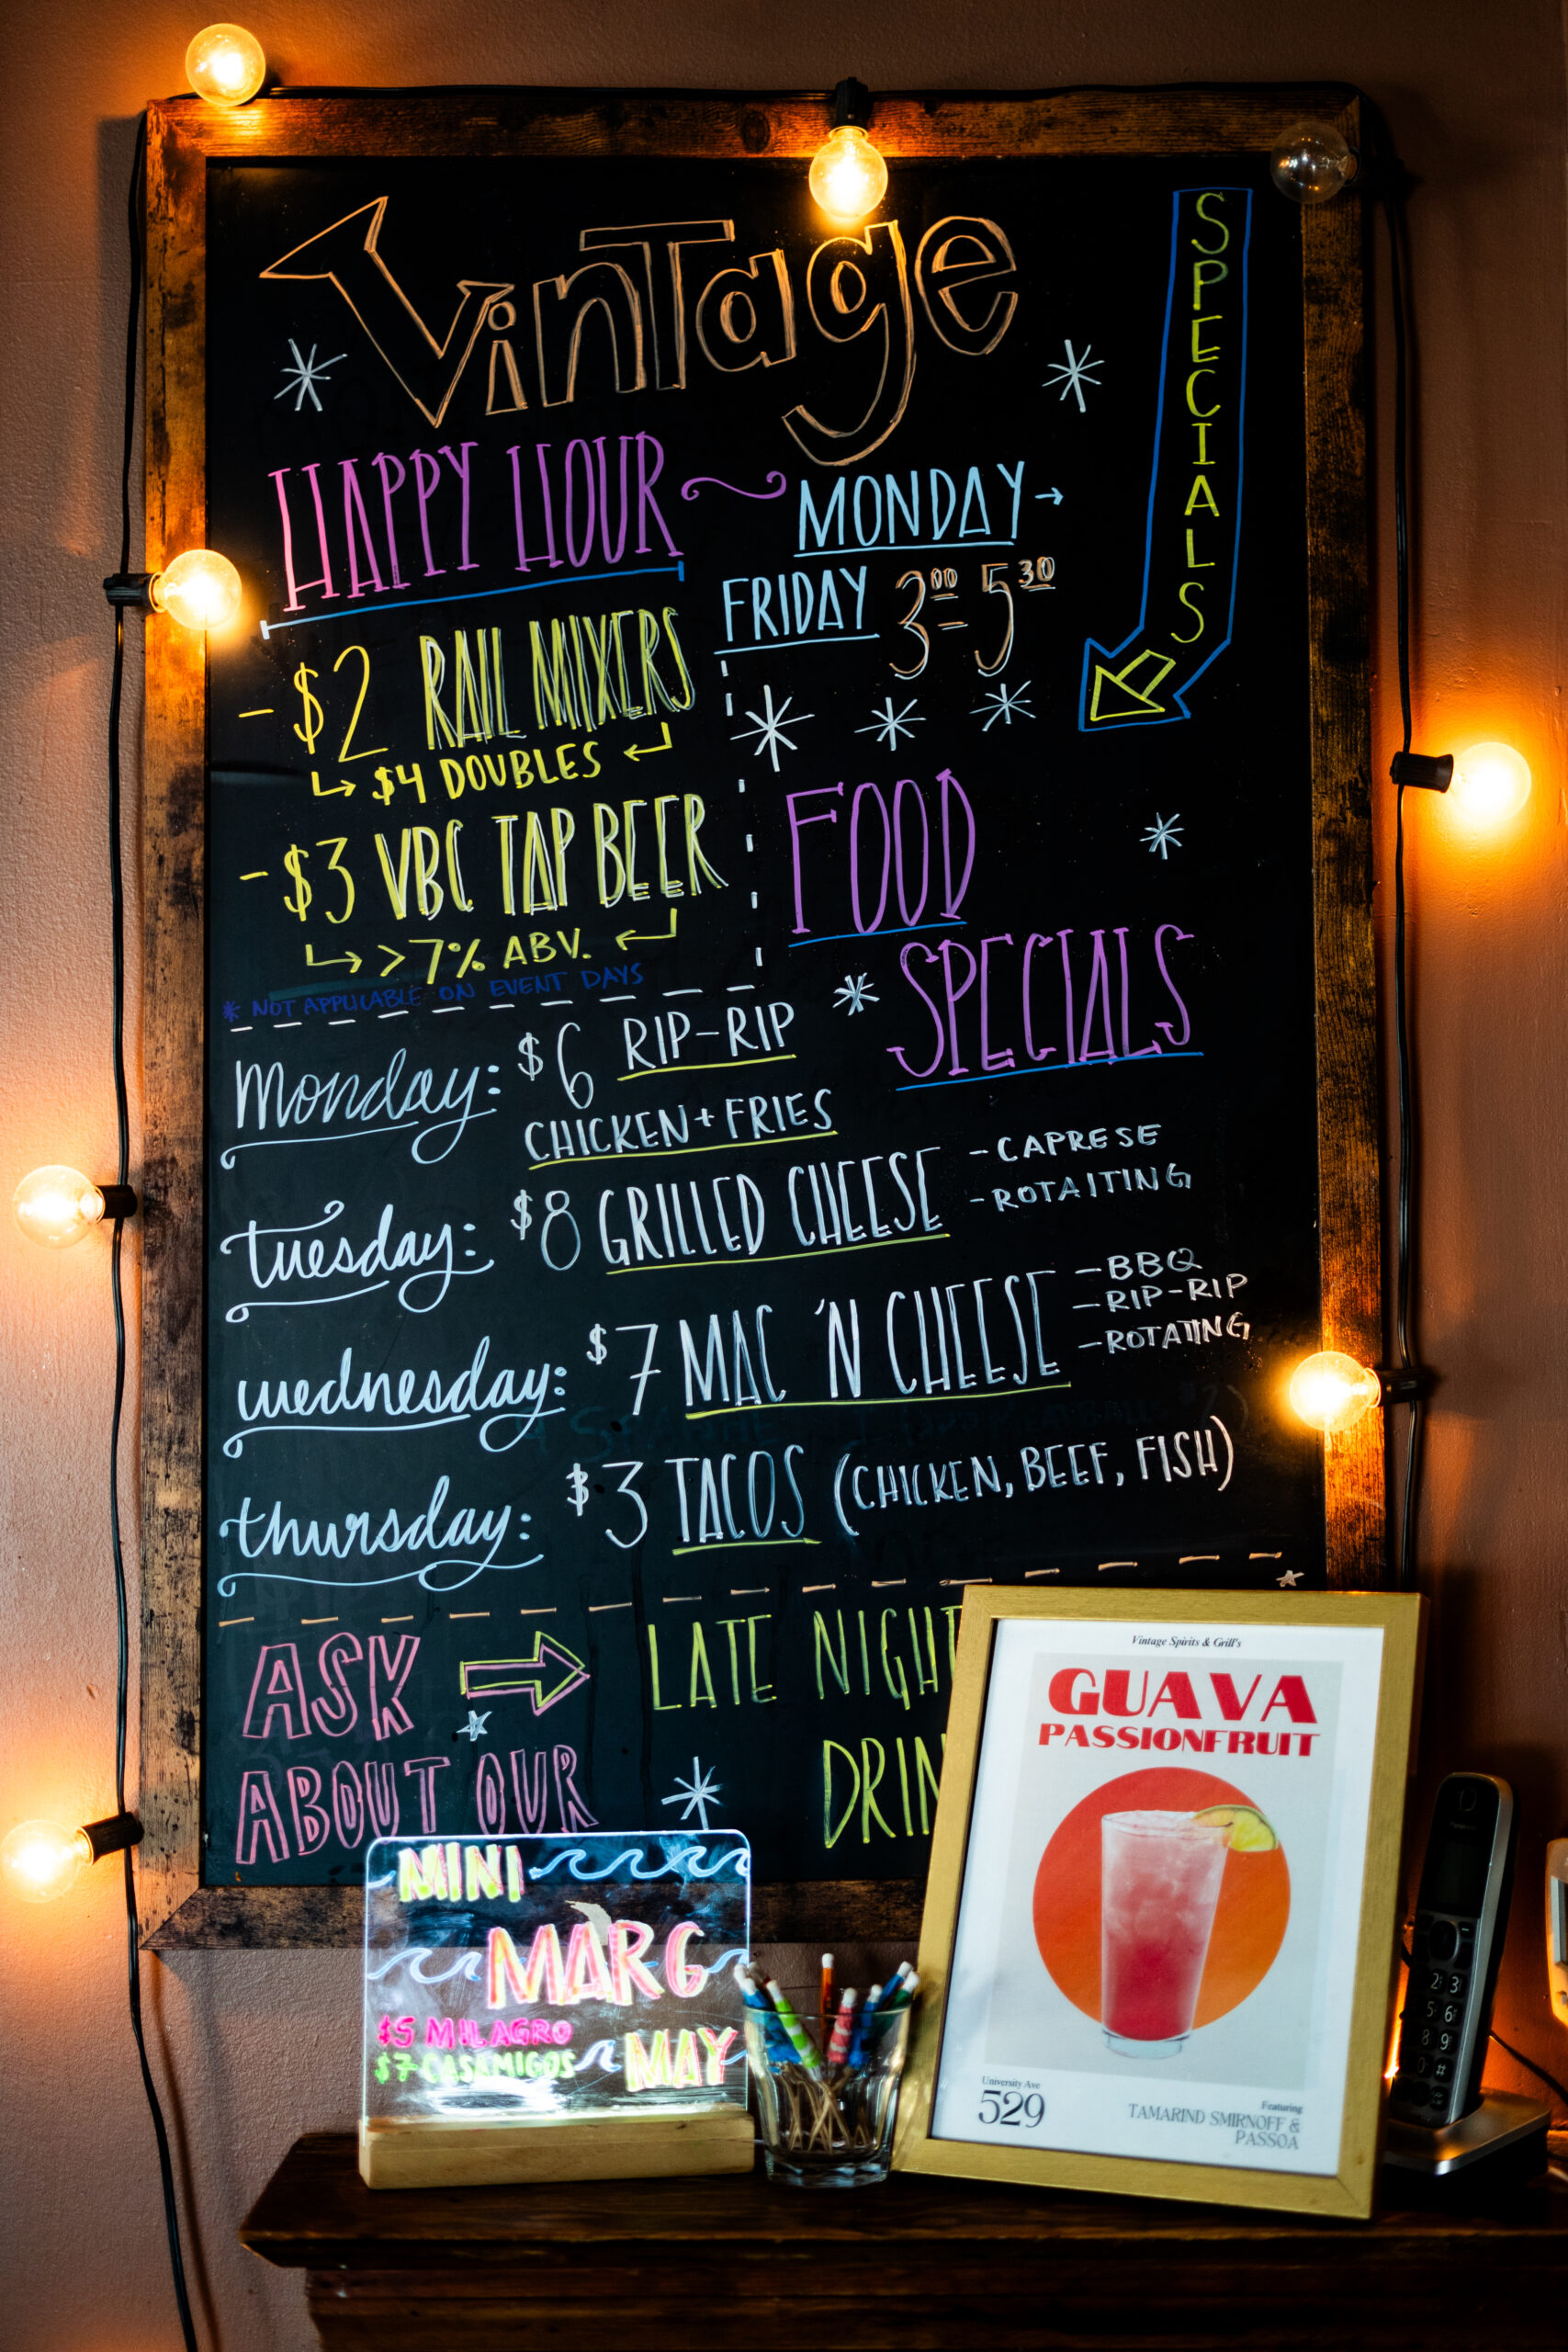 Vintage
SPECIALS
HAPPY HOUR
MONDAY →
FRIDAY 3:00 - 5:30
- $2 RAIL MIXERS
↳ $4 DOUBLES ↵
- $3 VBC TAP BEER
↳ >7% ABV. ↵
* NOT APPLICABLE ON EVENT DAYS
FOOD
SPECIALS
Monday: $6 RIP-RIP
CHICKEN + FRIES
tuesday: $8 GRILLED CHEESE
- CAPRESE
- ROTAITING
wednesday: $7 MAC 'N CHEESE
- BBQ
- RIP-RIP
- ROTATING
thursday: $3 TACOS (CHICKEN, BEEF, FISH)
ASK → LATE NIGHT
ABOUT OUR
DRIN
MINI
MARG
MAY
$5 MILAGRO
$7 CASAMIGOS
Vintage Spirits & Grill's
GUAVA
PASSIONFRUIT
University Ave
529
Featuring
TAMARIND SMIRNOFF &
PASSOA
2 3
5 6
8 9
#